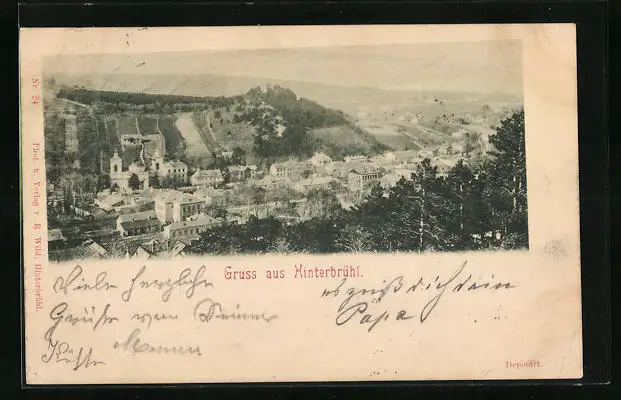 Nr. 24 Phot. u. Verlag v. R. Wild, Hinterbrühl.
Gruss aus Hinterbrühl.
Viele herzliche
Grüße von Deiner
Küsse Mamm
es grüßt Dich dein
Papa
Deponirt.